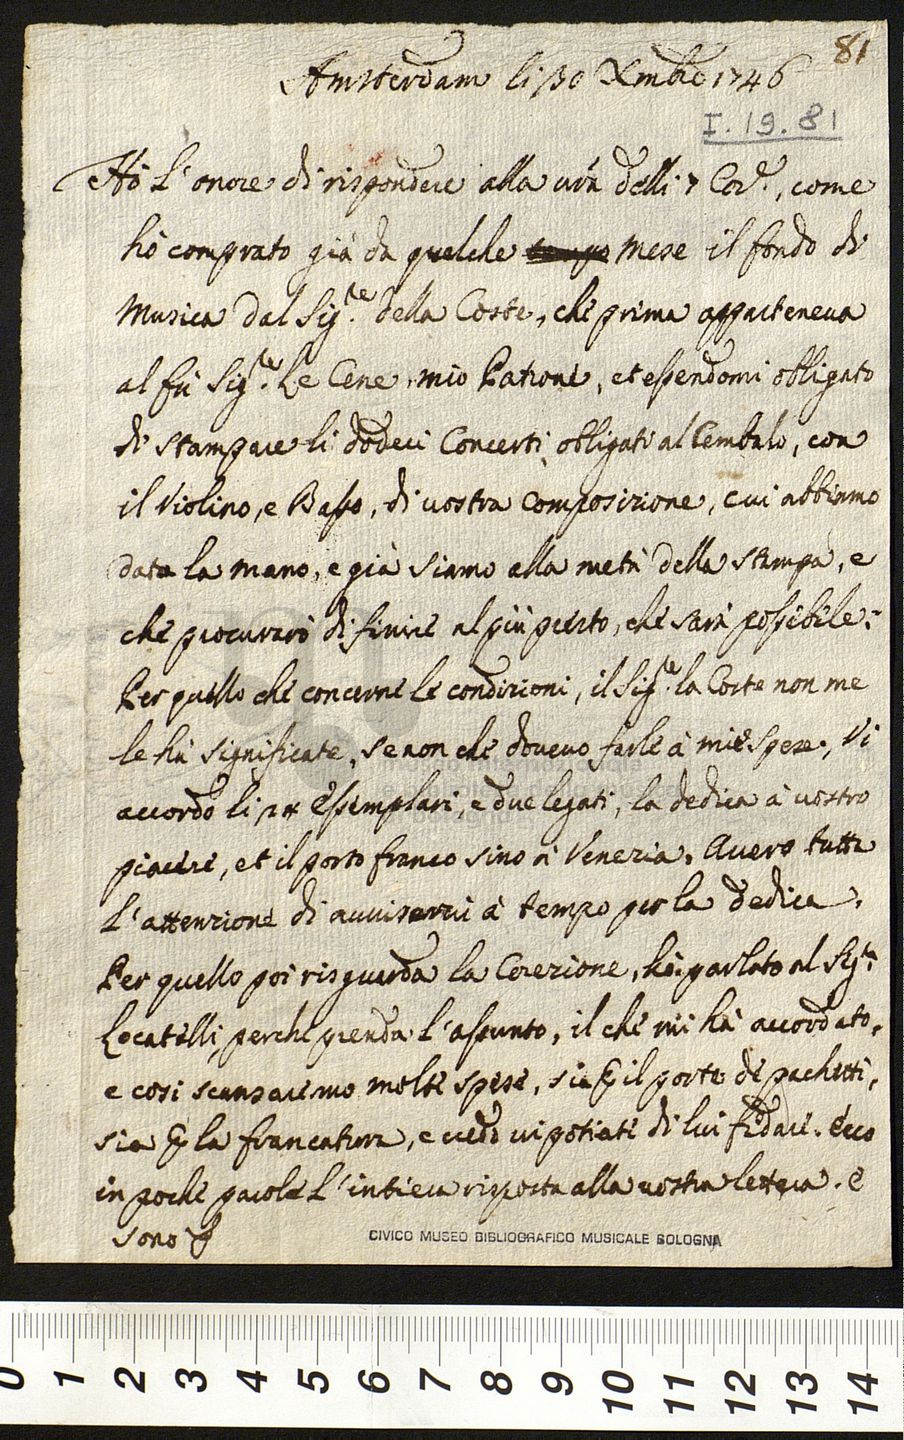 81
Amsterdam li 30 Xmbre 1746
I. 19. 81
Hò l'onore di rispondere alla vra delli 7 Cor.e, come
hò comprato già da quelche tempo mese il fondo di
Musica dal Sig.re della Coste, che prima apparteneva
al fù Sig.re Le Cene, mio Patrone, et essendomi obligato
di stampare li dodeci Concerti obligati al Cembalo, con
il Violino, e Basso, di vostra Composizione, cui abbiamo
dato la mano, e già siamo alla metà della stampa, e
che procurarò di finire al più presto, che sarà possibile.
Per quello che concerne le condizioni, il Sig.re la Coste non me
le hà significate, se non che dovevo farle à mie spese, Vi
accordo li 12 Essemplari, e due legati, la dedica à vostro
piacere, et il porto franco sino à Venezia. Averò tutta
l'attenzione di avvisarvi à tempo per la dedica.
Per quello poi risguarda la Corezione, hò parlato al Sig.re
Locatelli, perche prenda l'assunto, il che mi hà accordato,
e cosi scansaremo molte spese, sia per il porto de pachetti,
sia per la francatura, e credo vi potiati di lui fidare. Ecco
in poche parole l'intiera risposta alla vostra lettera. e
sono
CIVICO MUSEO BIBLIOGRAFICO MUSICALE BOLOGNA
0 1 2 3 4 5 6 7 8 9 10 11 12 13 14